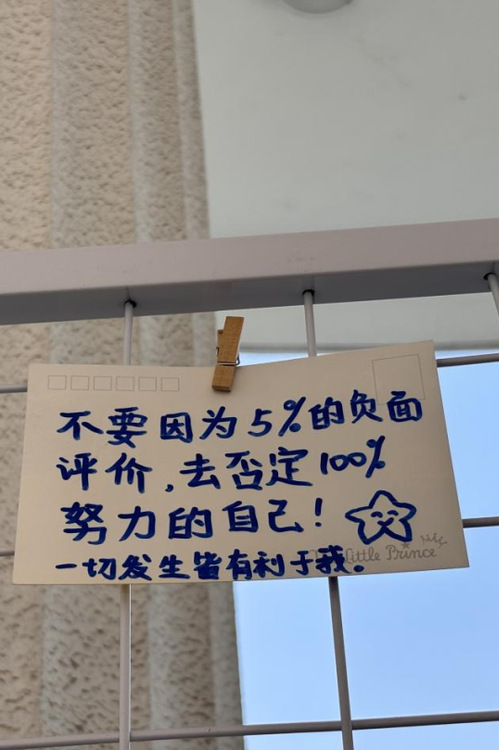 不要因为5%的负面
评价,去否定100%
努力的自己!
一切发生皆有利于我。
Little Prince